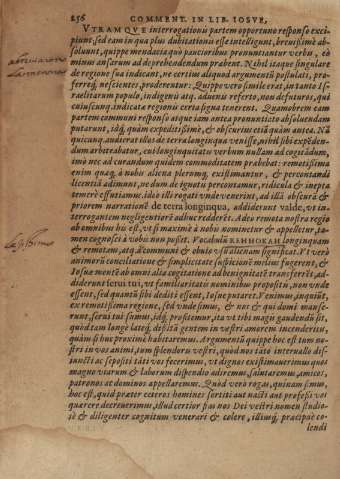 256 COMMENT. IN LIB. IOSVE,
VTRAMQVE interrogationis partem opportuno responso exci-
piunt, sed eam in qua plus dubitationis esse intelligunt, breuissimè ab-
soluunt, quippe mendacia quò paucioribus pronuntiantur verbis, eò
minus ansarum ad deprehendendum præbent. Nihil itaque singulare
de regione sua indicant, ne certius aliquod argumentũ postulati, pro-
ferreq́; nescientes, proderentur: Quippe vero simile erat, in tanto Is-
raelitarum populo, indigenis atq́; aduenis referto, non defuturos, qui
cuiuscunq́; indicatæ regionis certa signa tenerent. Quamobrem eam
partem communi responso atque iam antea pronuntiato absoluendam
putarunt, idq́; quàm expeditissimè, & obscurius etiã quàm antea. Nã
qui cunq́; audierat illos de terra longinqua venisse, nihil sibi expeden-
dum arbitrabatur, cui longinquitate verbum nullum ad cogitandum,
imò nec ad curandum quidem commoditatem præbebat: remotissima
enim quæq́; à nobis aliena plerumq́; existimantur, & percontandi
licentia adimunt, ne dum de ignotis percontamur, ridicula & inepta
temerè effutiamus. ideo illi rogati unde venerint, ad illã obscurã &
priorem narrationẽ de terra longinqua, addiderunt valde, vt in-
terrogantem negligentiorẽ adhuc redderẽt. Adeo remota nostra regio
ab omnibus hic est, vt si maximè à nobis nominetur & appelletur, ta-
men cognosci à vobis non possit. Vocabulũ longinquam
& remotam, atq́; à communi & obuia visã alienam significat. Vt verò
animorũ conciliatione & simplicitate suspicione melius fugerent, &
Iosuæ mentẽ ab omni alia cogitatione ad benignitatẽ transferrẽt, ad-
diderunt serui tui, vt familiaritatis nominibus propositis, non vnde
essent, sed quantũ sibi dediti essent, Iosue putaret. Venimus, inquiũt,
ex remotissima regione, sed vnde simus, & nos & qui domi manse-
runt, serui tui sumus, idq́; profitemur, ita vt tibi magis gaudendũ sit,
quòd tam longè lateq́; dispositã gentem in vestri amorem incenderitis,
quàm si huc proximè habitaremus. Argumentũ quippe hoc est tum no-
stri in vos animi, tum splendoris vestri, quòd nos tãto interuallo dis-
iunctis ac sepositi tãti vos fecerimus, vt dignos existimauerimus quos
magno viarum & laborum dispendio adiremus, salutaremus, amicos,
patronos ac dominos appellaremus. Quòd verò rogas, quinam simus,
hoc est, quid præter ceteros homines sortiti aut nacti aut professi vos
quærere decreuerimus, illud certior fias nos Dei vestri nomen studio-
sè & diligenter cognitum venerari & colere, illumq́; præcipuè co-
lendi